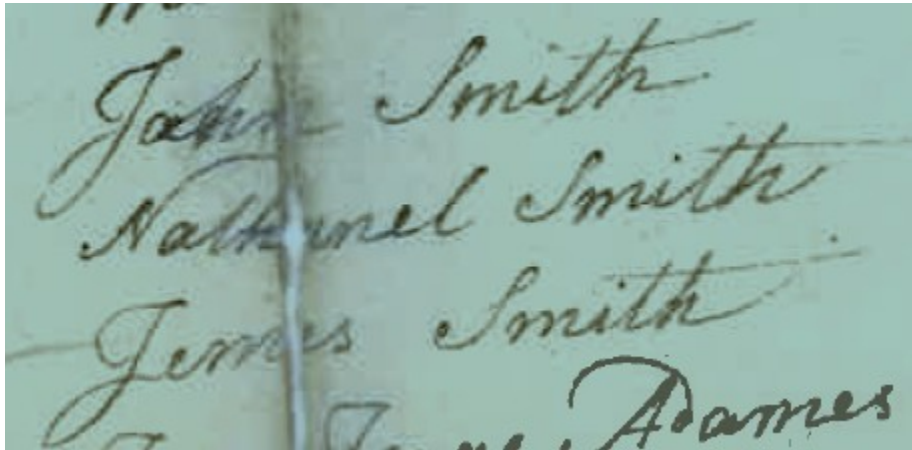 John Smith
Nathanel Smith
Jemes Smith
Adames